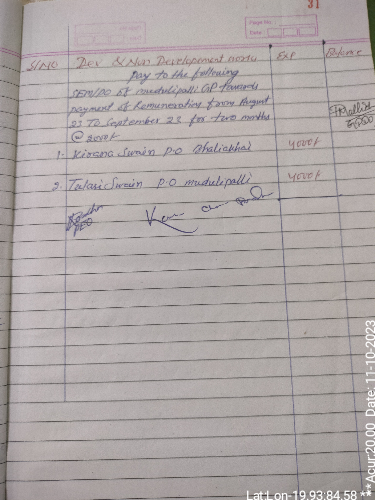 31
Page No.
Date
S/NO Dev & Non Development works Exp Balance
Pay to the following
of mudulipalli GP towards
payment of Remuneration from August
23 To September 23 for two months
@ 2000/-
1. Swain P.O Dhaliakhai 4000/-
2. Tulasi Swain P.O mudulipalli 4000/-
PEO
Lat Lon-19.93:84.58 ***Acur:20.00 Date: 11-10-2023